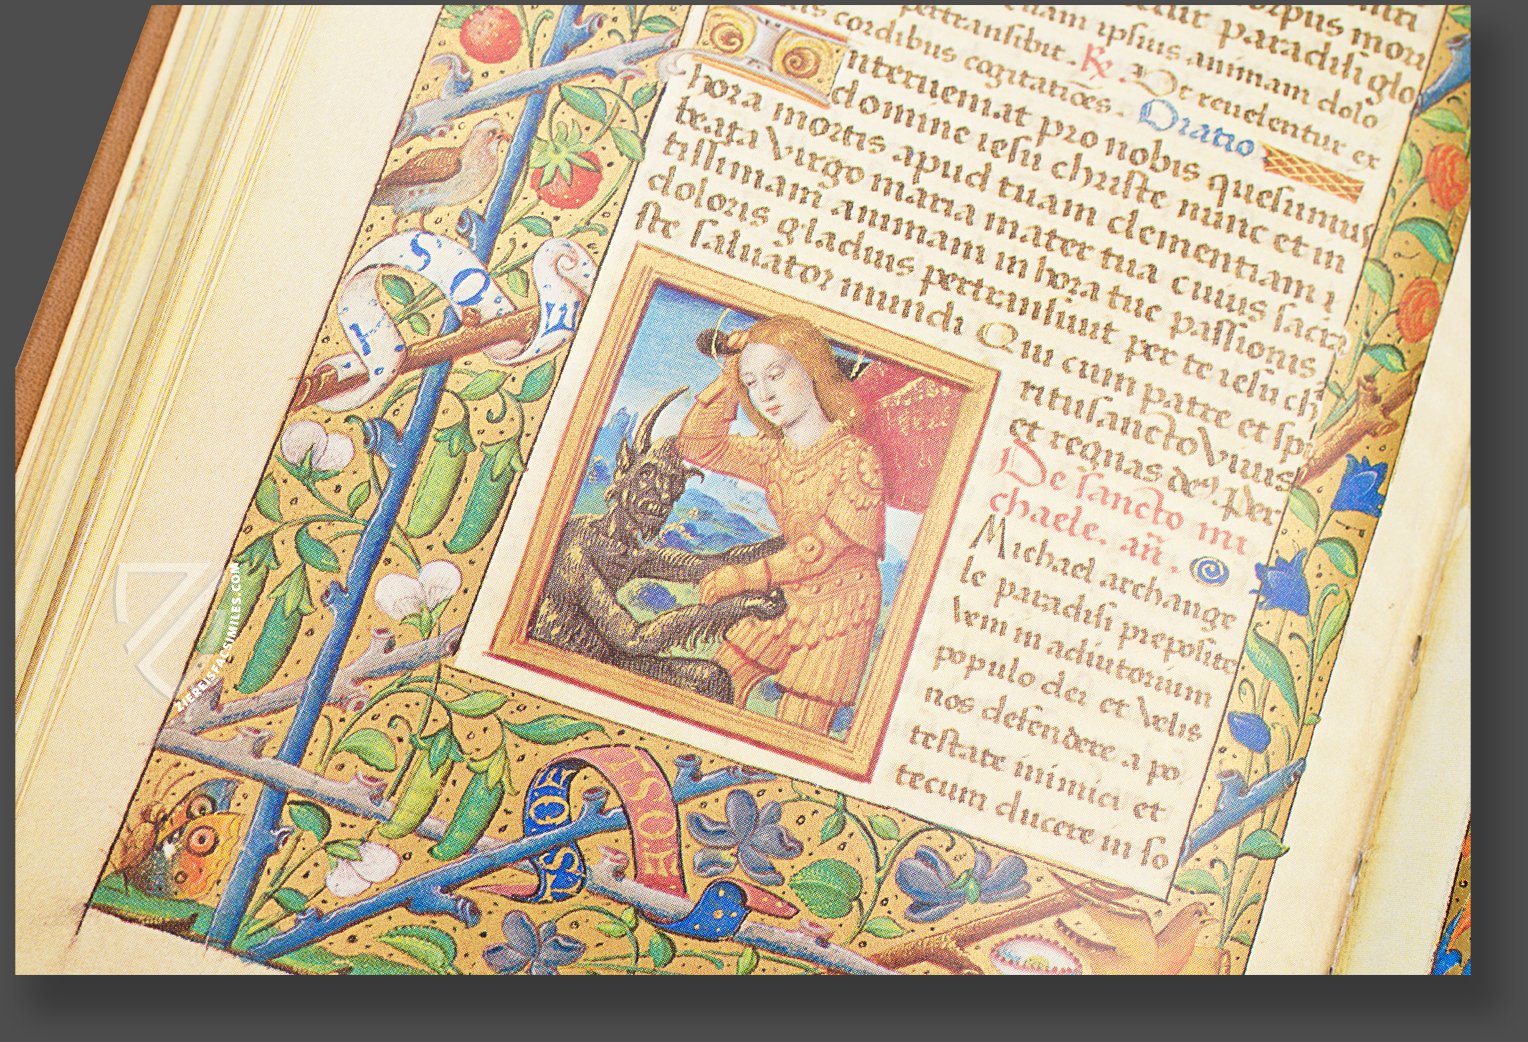 corpus mori
paradisi glo
etiam ipsius animam dolo
pertransibit. ℟ Vt reuelentur ex
cordibus cogitatiões. Oratio
Interueniat pro nobis quesumus
domine iesu christe nunc et in
hora mortis apud tuam clementiam
beata Virgo maria mater tua cuius sacra
tissimam animam in hora tue passionis
doloris gladius pertransiuit per te iesu ch
ste saluator mundi Qui cum patre et spi
ritu sancto Viuis
et regnas de⁹ Per
De sancto mi
chaele. añ.
Michael archange
le paradisi preposite
Veni in adiutorium
populo dei et Velis
nos defendere a po
testate inimici et
tecum ducere in so
L SOE
SOE
ISOE
ZIEREISFACSIMILES.COM